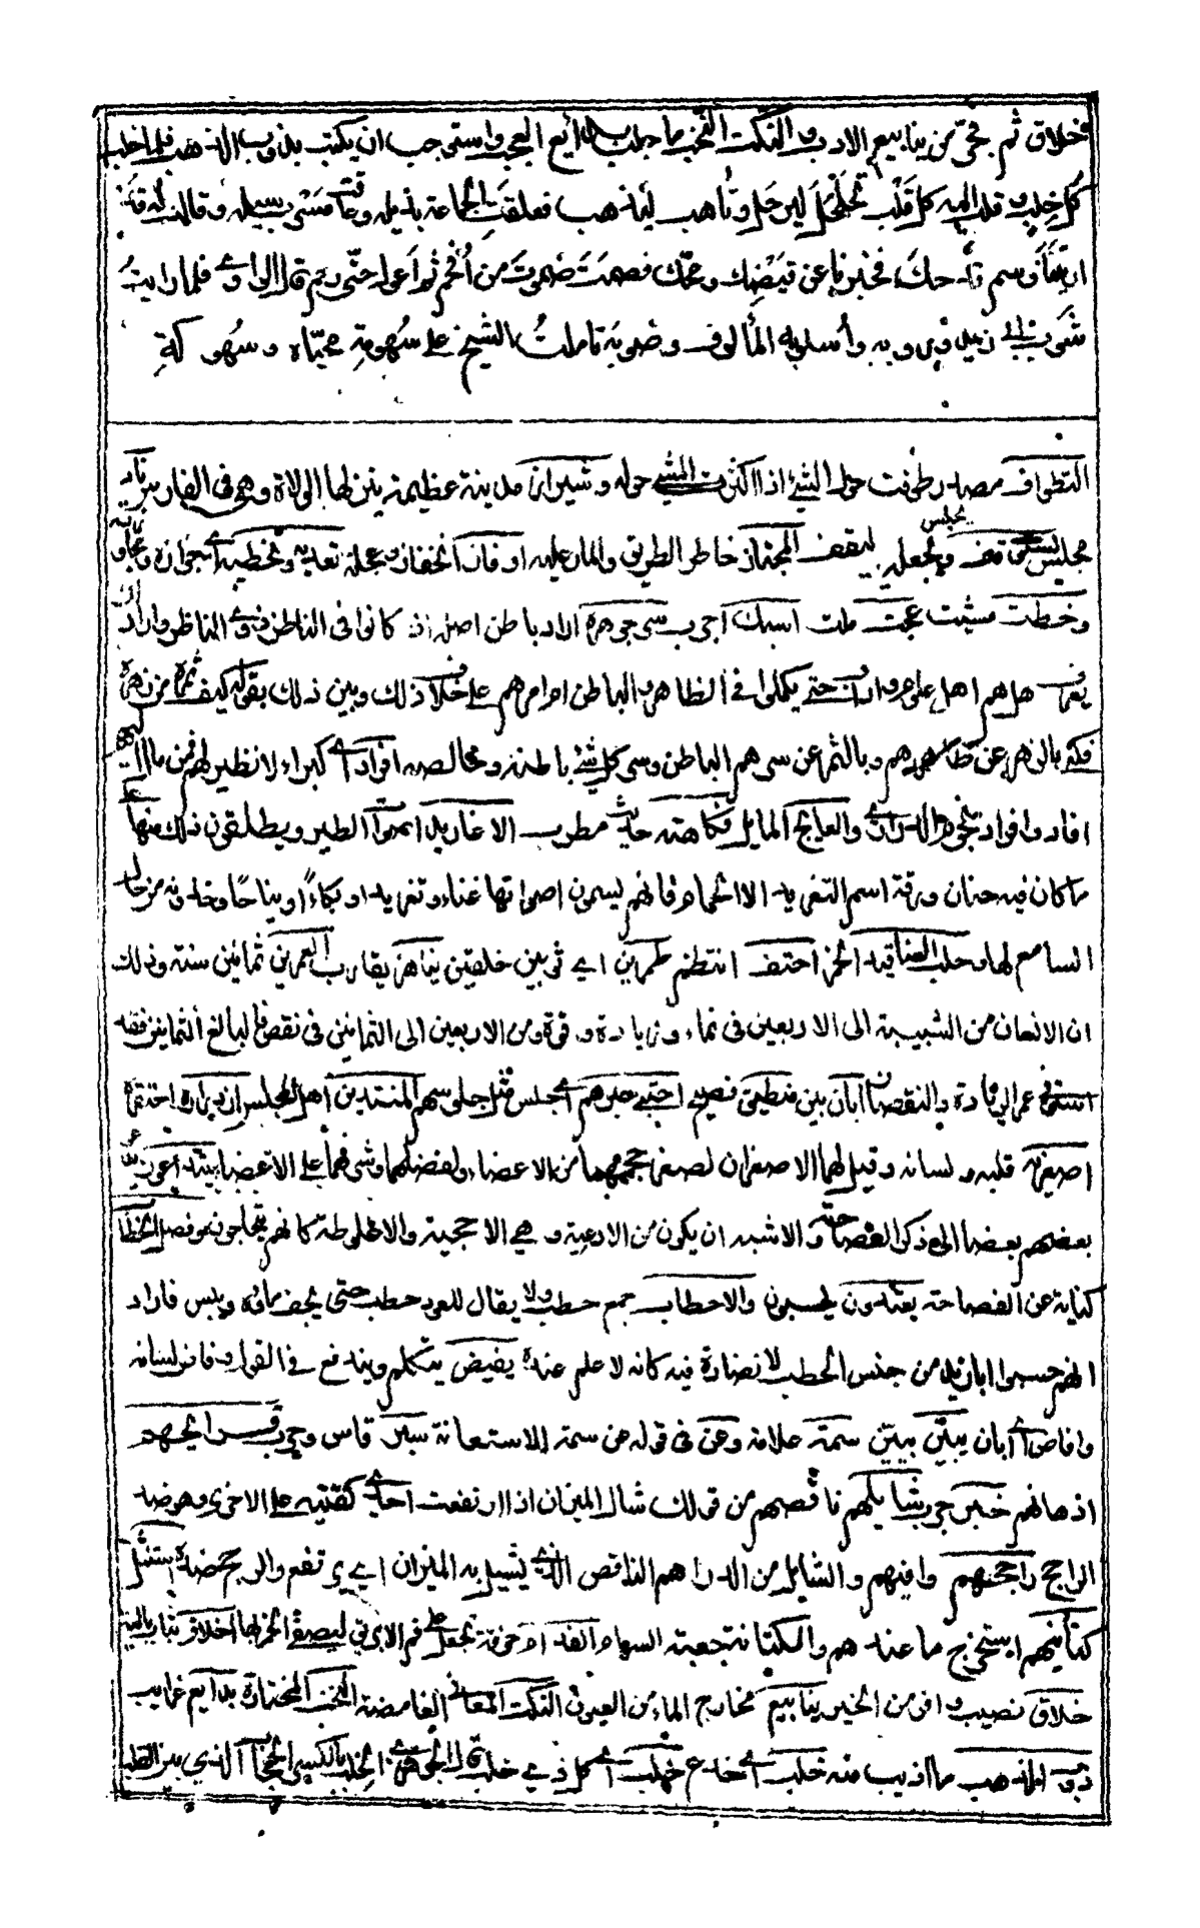 خلاق ثم بحى من ينابيع الادب والنكت النخب ما جلب بدائع العجب واستوجب ان يكتب بذوب الذهب فلما خلب
كل خلب وقلب اليه كل قلب تحلحل ليرحل وتأهب ليذهب فعلقت الجماعة بذيله وعاقت مسرب سيله وقالت له قد
ارى وسم قدحك فخبرنا عن قيضك ومحك فصمت صموت من أفحم ثم اعول حتى رحم قال الراوى فلما رايت
شوب ابى زيد وروبه وأسلوبه المألوف وصوبه تاملت الشيخ على سهومة محياه وسهوكة
التطواف مصدر طوفت حول الشئ اذا اكثرت المشى حوله وشيراز مدينة عظيمة ينزلها الولاة وهى فى الفارسية
مجلس يستوقف ويجعله ليقف المجتاز خاطر الطريق والمار عليه اوفاز انحفاز وعجلة تعديه وتخطيه اى جوازه
وخطت مشيت عجت ملت اسبك اجرب سر جوهره اراد باطن اصله اذ كانوا فى الناظر واراد ان
يعرف هل هم اهل علم وادب حتى يكملوا فى الظاهر والباطن ام امرهم على خلاف ذلك وبين ذلك بقوله كيف ثمره من زهره
فكنى بالزهر عن ظاهرهم وبالثمر عن سرهم الباطن وسر كل شئ باطنه وخالصه افراد اى كبراء لا نظير لهم فمن مال اليهم
افاد وافراد نجوم الدرارى والعايج المايل فكاهة حديث مطرب الاغاريد اصوات الطير ويطلقون ذلك منها على
ما كان فيه حنان ورقة اسم التغريد الا الحمام فانهم يسمون اصواتها غناء وتغريد او بكاءً او نياحًا وهذا مأخوذ من حال
السامع لها وحلب العناقيد الخمر احتف انتظم طمرين اى ثوبين خلقين يناهز يقارب العمرين ثمانين سنة وذلك
ان الانسان من الشبيبة الى الاربعين فى نماء وزيادة وقوة ومن الاربعين الى الثمانين فى نقص فالبالغ الثمانين فقد
استوفى عمر الزيادة والنقصان ابان بين منطيق فصيح احتبى حبوتهم اى جلس مثل جلوسهم المنتدين اهل المجلس ازدراه احتقره
اصغريه قلبه ولسانه وقيل لهما الاصغران لصغر حجمهما من الاعضاء ولفضلهما وشرفهما على الاعضاء يتداعون يدعو
بعضهم بعضا الى ذكر الفصاحة والاشبه ان يكون من الادعية وهى الاحجية والاغلوطة كانهم يتحاجون وفصل الخطاب
كناية عن الفصاحة يعتدون يحسبون والاحطاب جمع حطب ولا يقال للعود حطب حتى يجف ماؤه ويبس فاراد
انهم حسبوا ابا زيد من جنس الحطب لا نضارة فيه كانه لا علم عنده يفيض يتكلم ويندفع فى القول وفاض لسانه
وافاض اى ابان يبين يبين سمة علامة وعن فى قوله عن سمة للاستعانة سبر قاس وجرب قرايحهم
اذهانهم خبر جرب شايلهم ناقصهم من قولك شال الميزان اذا ارتفعت احدى كفتيه على الاخرى وهو ضد
الراجح راجحهم وافيهم والشايل من الدراهم الناقص الذى يشيل به الميزان اى يرتفع والراجح ضده استنثل
كنانتهم استخرج ما عندهم والكنانة جعبة السهام الفدام خرقة تجعل على فم الابريق ليصفى الخمر بها اخلاق ثياب بالية
خلاق نصيب وافر من الخير ينابيع مخارج الماء من العيون النكت المعانى الغامضة النخب المختارة بدايع غرايب
ذوب الذهب ما اذيب منه خلب اى خدع خلب اى كل ذى خلب قال الجوهرى الخلب بالكسر الحجاب الذى بين القلب